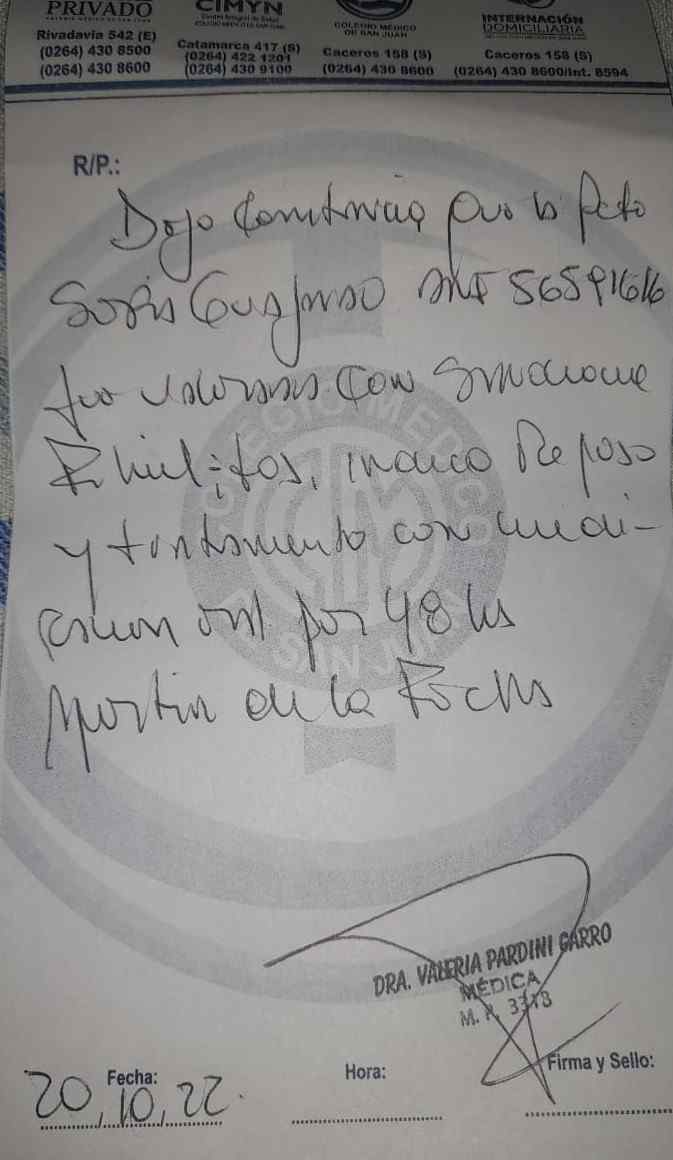 PRIVADO
COLEGIO MÉDICO DE SAN JUAN
CIMYN
COLEGIO MÉDICO
DE SAN JUAN
INTERNACIÓN
DOMICILIARIA
Rivadavia 542 (E)
(0264) 430 8500
(0264) 430 8600
Catamarca 417 (S)
(0264) 422 1201
(0264) 430 9100
Caceros 158 (S)
(0264) 430 8600
Caceros 158 (S)
(0264) 430 8600/Int. 8594
R/P.:
Dejo Constancia que la Pcte
56591616
fue valorada con Sindrome
indico Reposo
y tratamiento con medi-
cacion oral por 48 hs
Martin de la
COLEGIO MEDICO
SAN JUAN
DRA. VALERIA PARDINI GARRO
MÉDICA
M. P. 3318
Fecha:
20,10,22.
Hora:
Firma y Sello: